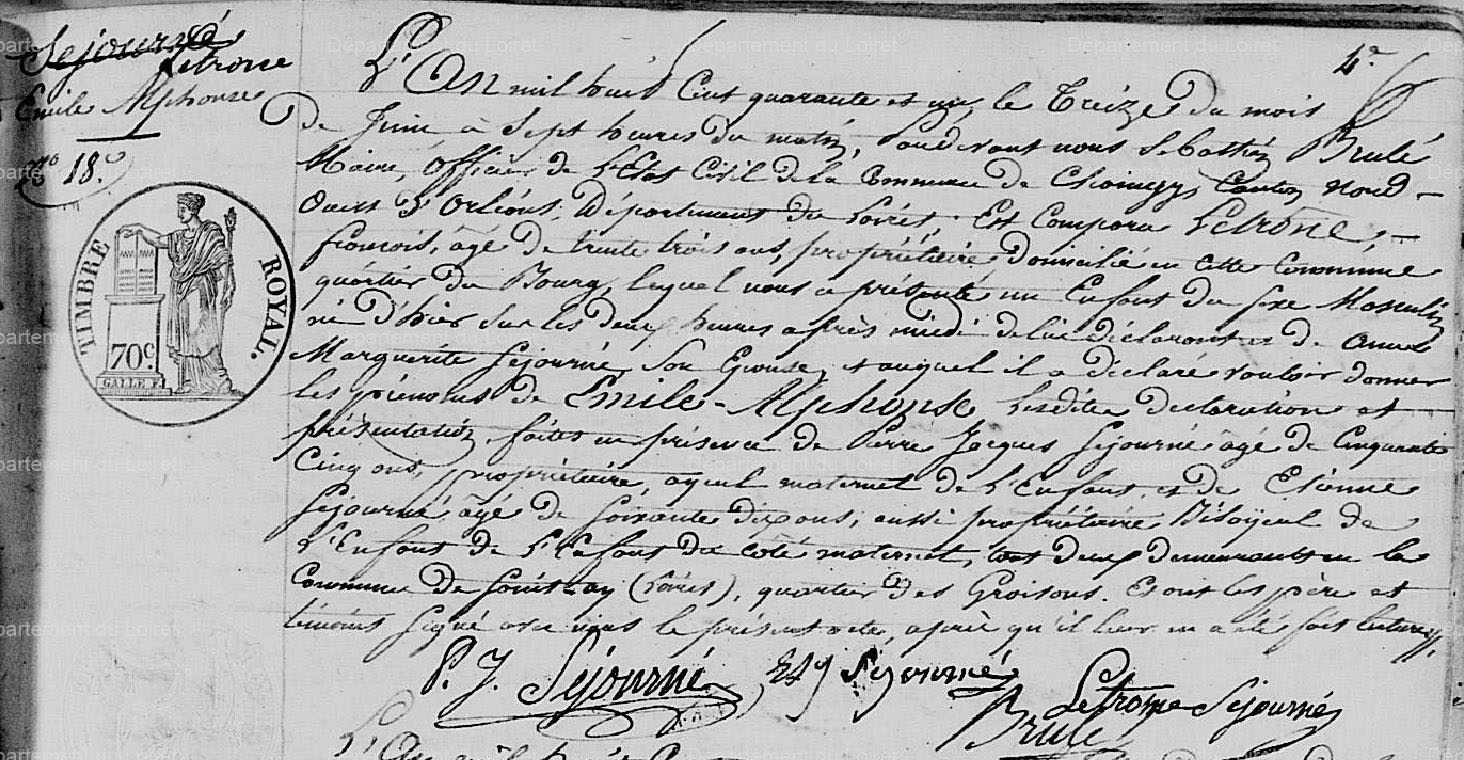 Séjourné
Letrone
Emile Alphonse
No 18.
TIMBRE ROYAL.
70c.
GALLE F.
4e
L'An mil huit Cent quarante et un, le Treize du mois
de Juin à Sept heures du matin, Pardevant nous Sébastien Brulé
Maire, Officier de l'Etat Civil de la Commune de Chaingy, Canton Nord-
Ouest d'Orléans, Département du Loiret; Est Comparu Letrone,
françois, âgé de trente trois ans, propriétaire domicilié en cette Commune
quartier du Bourg, lequel nous a présenté un Enfant du sexe Masculin
né d'hier sur les deux heures après midi de lui déclarant et de Anne
Marguerite Séjourné, son Epouse, et auquel il a déclaré vouloir donner
les prénoms de Emile-Alphonse, lesdites déclaration et
présentation faites en présence de Pierre Jacques Séjourné âgé de Cinquante
Cinq ans, propriétaire, ayeul maternel de l'Enfant, et de Etienne
Séjourné âgé de soixante dix ans, aussi propriétaire, Bisayeul de
l'Enfant de l'Enfant du coté maternel, tous deux demeurants en la
Commune de (Loiret), quartier des Groisons. Et ont les père et
témoins signé avec nous le présent acte, après qu'il leur en a été fait lecture.
P. J. Séjourné Séjourné
Letrone Séjourné
Brulé
L'An mil huit